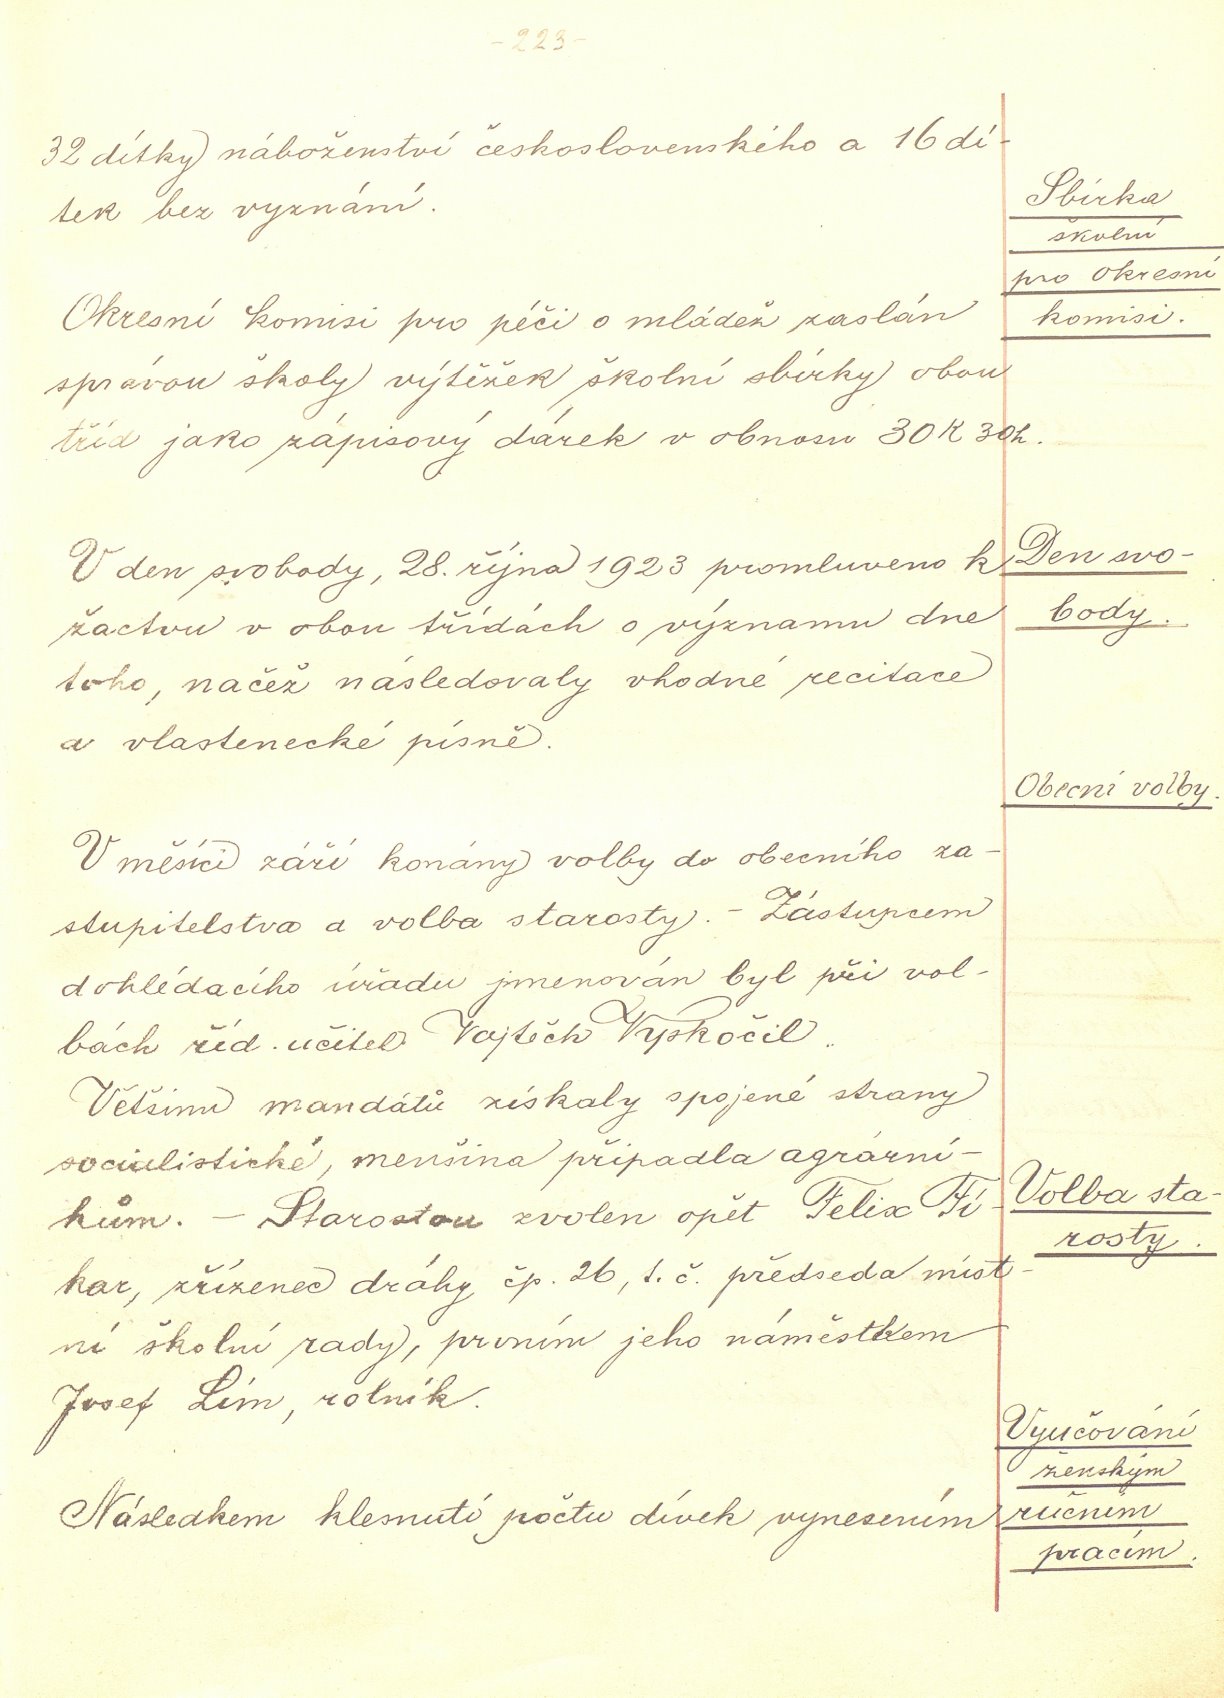 - 223 -
32 dítky) náboženství československého a 16 dí-
tek bez vyznání.
Sbírka
školní
pro okresní
komisi.
Okresní komisi pro péči o mládež zaslán
správou školy výtěžek školní sbírky obou
tříd jako zápisový dárek v obnosu 30 K 30 h.
Den svo-
body.
V den svobody, 28. října 1923 promluveno k
žactvu v obou třídách o významu dne
toho, načež následovaly vhodné recitace
a vlastenecké písně.
Obecní volby.
V měsíci září konány volby do obecního za-
stupitelstva a volba starosty. - Zástupcem
dohlédacího úřadu jmenován byl při vol-
bách říd. učitel Vojtěch Vyskočil.
Většinu mandátů získaly spojené strany
socialistické, menšina připadla agrární-
kům. - Starostou zvolen opět Felix Fí-
kar, zřízenec dráhy čp. 26, t. č. předseda míst-
ní školní rady, prvním jeho náměstkem
Josef Lím, rolník.
Volba sta-
rosty.
Vyučování
ženským
ručním
pracím.
Následkem klesnutí počtu dívek vynesením